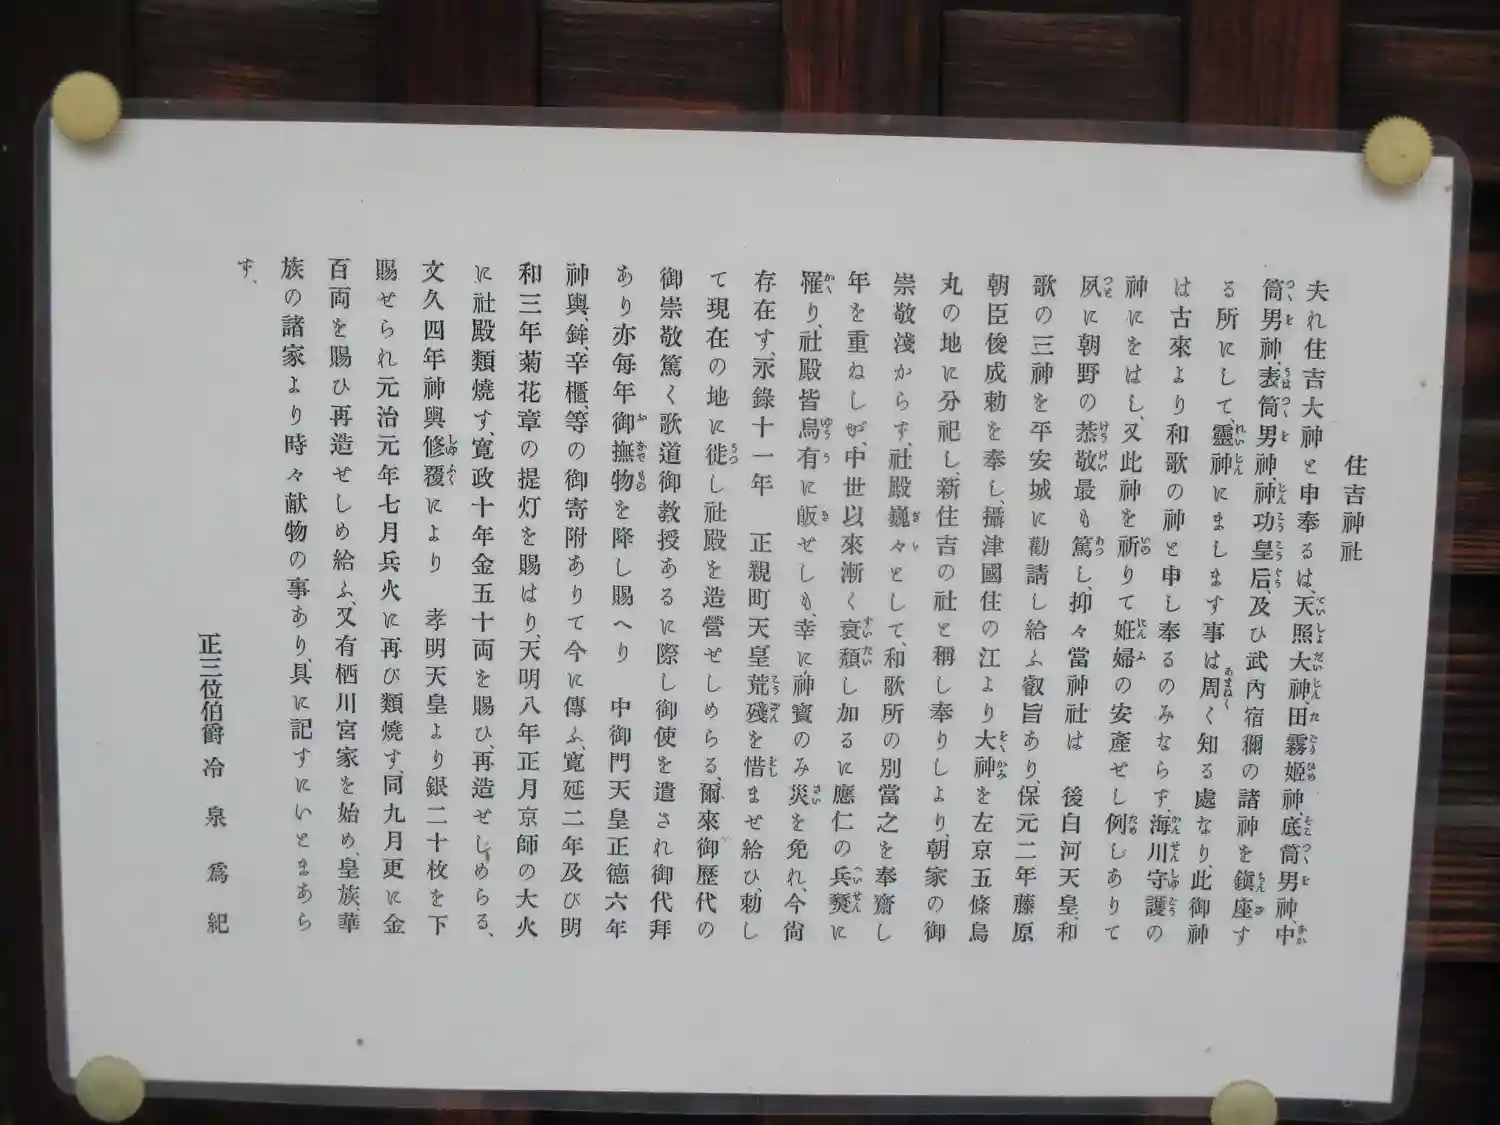 住吉神社
夫れ住吉大神と申奉るは、天照大神、田霧姫神、底筒男神、中
筒男神、表筒男神、神功皇后、及ひ武内宿禰の諸神を鎮座す
る所にして、靈神にまします事は周く知る處なり、此御神
は古來より和歌の神と申し奉るのみならす、海川守護の
神にをはし、又此神を祈りて姙婦の安產せし例しありて
夙に朝野の恭敬最も篤し、抑々當神社は　後白河天皇、和
歌の三神を平安城に勸請し給ふ叡旨あり、保元二年藤原
朝臣俊成勅を奉し、攝津國住の江より大神を左京五條烏
丸の地に分祀し、新住吉の社と稱し奉りしより、朝家の御
崇敬淺からす、社殿、巍々として、和歌所の別當之を奉齋し
年を重ねしが、中世以來漸く衰頽し加るに應仁の兵燹に
罹り、社殿皆烏有に皈せしも、幸に神寶のみ災を免れ、今尙
存在す、永錄十一年　正親町天皇荒殘を惜ませ給ひ、勅し
て現在の地に徙し社殿を造營せしめらる、爾來御歷代の
御崇敬篤く歌道御教授あるに際し御使を遣され御代拜
あり亦每年御撫物を降し賜へり　中御門天皇正德六年
神輿、鉾、辛櫃等の御寄附ありて今に傳ふ、寬延二年及び明
和三年菊花章の提灯を賜はり、天明八年正月京師の大火
に社殿類燒す、寬政十年金五十両を賜ひ、再造せしめらる、
文久四年神輿修覆により　孝明天皇より銀二十枚を下
賜せられ元治元年七月兵火に再び類燒す、同九月更に金
百両を賜ひ再造せしめ給ふ、又有栖川宮家を始め、皇族、華
族の諸家より時々献物の事あり、具に記すにいとまあら
す、
正三位伯爵冷泉爲紀